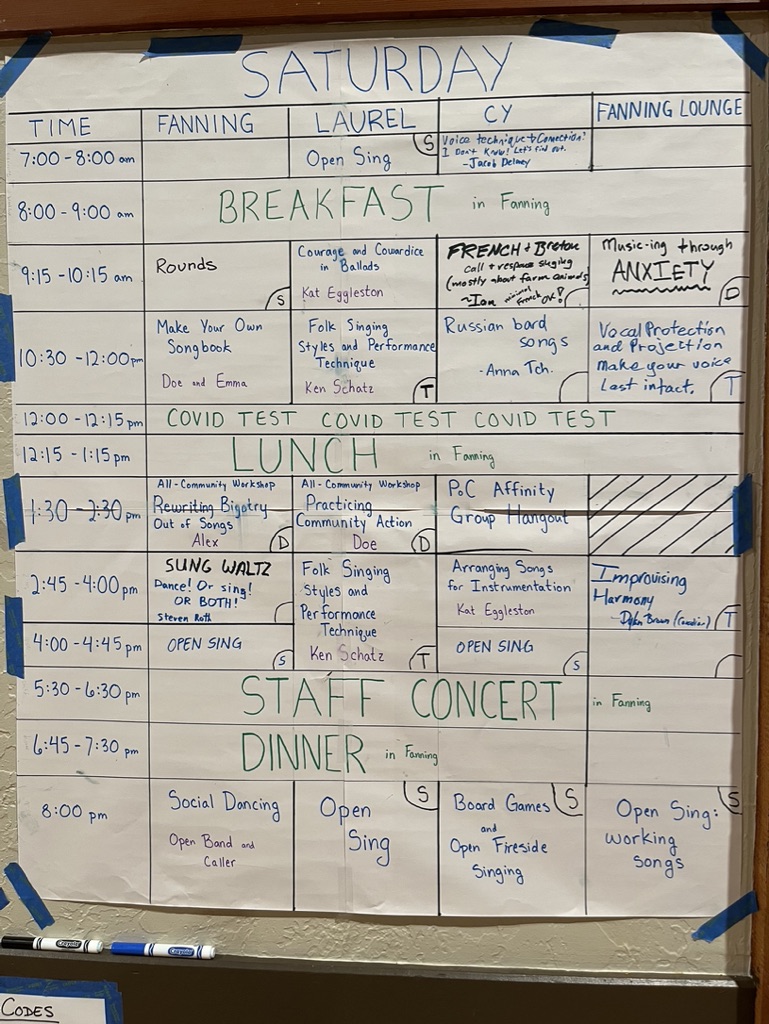 SATURDAY
TIME FANNING LAUREL CY FANNING LOUNGE
7:00 - 8:00 am
Open Sing
S
Voice technique + Connection?
I Don't Know! Let's find out.
- Jacob Delney
8:00 - 9:00 am
BREAKFAST in Fanning
9:15 - 10:15 am
Rounds
S
Courage and Cowardice
in Ballads
Kat Eggleston
FRENCH + Breton
call + response singing
(mostly about farm animals)
~Ian minimal French OK!
Music-ing through
ANXIETY
D
10:30 - 12:00pm
Make Your Own
Songbook
Doe and Emma
Folk Singing
Styles and Performance
Technique
Ken Schatz
T
Russian bard
songs
- Anna Tch.
Vocal Protection
and Projection
Make your voice
Last intact.
T
12:00 - 12:15 pm
COVID TEST COVID TEST COVID TEST
12:15 - 1:15 pm
LUNCH in Fanning
1:30 - 2:30 pm
All-Community Workshop
Rewriting Bigotry
Out of Songs
Alex
D
All-Community Workshop
Practicing
Community Action
Doe
D
PoC Affinity
Group Hangout
2:45 - 4:00pm
SUNG WALTZ
Dance! Or sing!
OR BOTH!
Steven Roth
Folk Singing
Styles and
Performance
Technique
Ken Schatz
T
Arranging Songs
for Instrumentation
Kat Eggleston
Improvising
Harmony
T
4:00 - 4:45pm
OPEN SING
S
OPEN SING
S
5:30 - 6:30 pm
STAFF CONCERT in Fanning
6:45 - 7:30 pm
DINNER in Fanning
8:00 pm
Social Dancing
Open Band and
Caller
Open
Sing
S
Board Games
and
Open Fireside
Singing
S
Open Sing:
working
songs
S
Crayola
Crayola
CODES